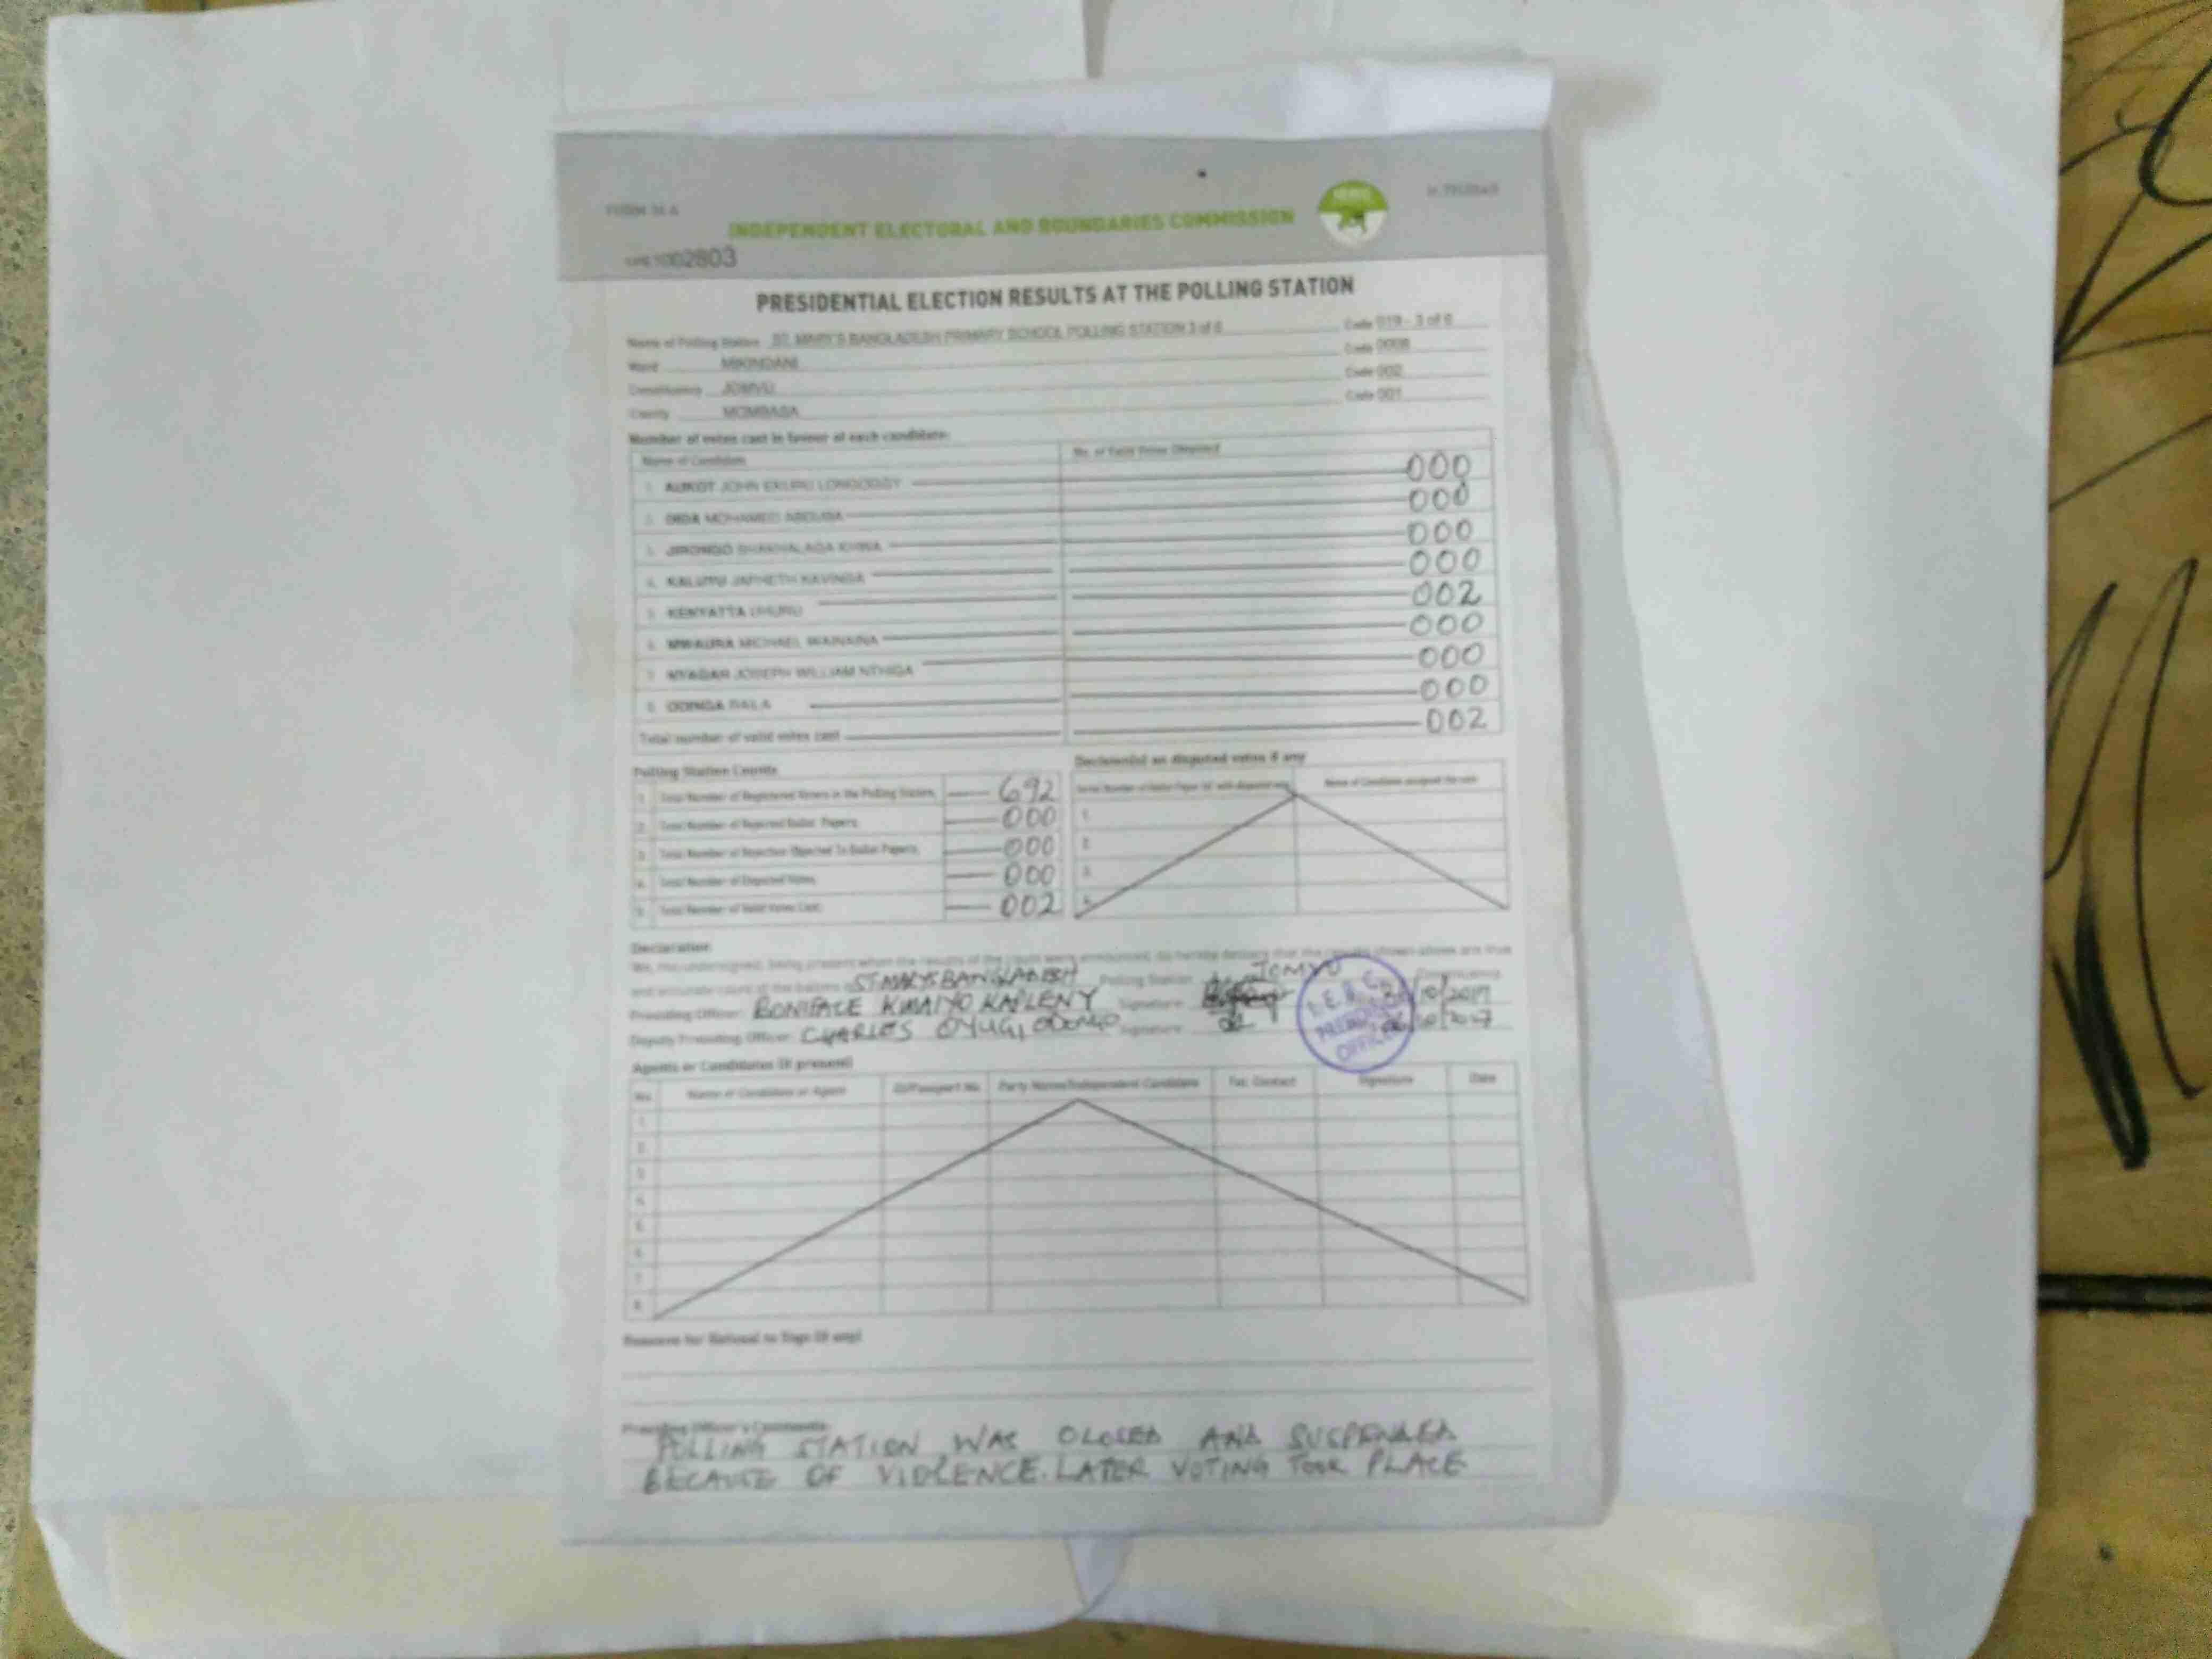 FORM 34 A
INDEPENDENT ELECTORAL AND BOUNDARIES COMMISSION
002803
PRESIDENTIAL ELECTION RESULTS AT THE POLLING STATION
Name of Polling Station ST. MARY'S BANGLADESH PRIMARY SCHOOL POLLING STATION 3 of 6 Code 019 - 3 of 6
Ward MIKINDANI Code 0008
Constituency JOMVU Code 002
County MOMBASA Code 001
Number of votes cast in favour of each candidate:
Name of Candidate No. of Valid Votes Obtained
1. AUKOT JOHN EKURU LONGOGGY 000
2. DIDA MOHAMED ABDUBA 000
3. JIRONGO SHAKHALAGA KHWA 000
4. KALUYU JAPHETH KAVINGA 000
5. KENYATTA UHURU 002
6. MWAURA MICHAEL WAINAINA 000
7. NYAGAH JOSEPH WILLIAM NTHIGA 000
8. ODINGA RAILA 000
Total number of valid votes cast 002
Polling Station Counts
1. Total Number of Registered Voters in the Polling Station 692
2. Total Number of Rejected Ballot Papers 000
3. Total Number of Rejection Objected To Ballot Papers 000
4. Total Number of Disputed Votes 000
5. Total Number of Valid Votes Cast 002
Decision(s) on disputed votes if any
Name of Candidate assigned the vote
1.
2.
3.
4.
Declaration
We, the undersigned, being present when the results of the count were announced, do hereby declare that the results shown above are true
and accurate count of the ballots ST MARYS BANGLADESH Polling Station JOMVU Constituency
Presiding Officer: BONIFACE KIMAIYO KAPLENY Signature /10/2017
Deputy Presiding Officer: CHARLES OYUGI ODONGO Signature 2017
I.E.B.C.
PRESIDING
OFFICER
Agents or Candidates (if present)
No. Name of Candidate or Agent ID/Passport No. Party Name/Independent Candidate Tel. Contact Signature Date
1
2
3
4
5
6
7
8
Reasons for Refusal to Sign (if any)
Presiding Officer's Comments:
POLLING STATION WAS CLOSED AND SUSPENDED
BECAUSE OF VIOLENCE. LATER VOTING TOOK PLACE